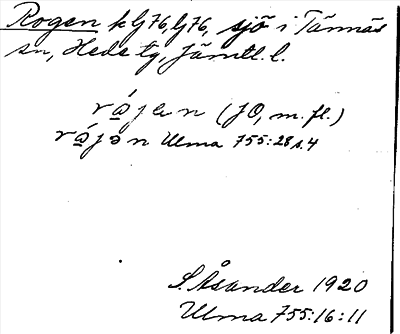 Rogen k lj 76, lj 76, sjö i Tännäs
sn, Hede tg, Jämtl. l.
rájen (JO, m.fl.)
rájən Ulma 755:28 s.4
S. Åsander 1920
Ulma 755:16:11